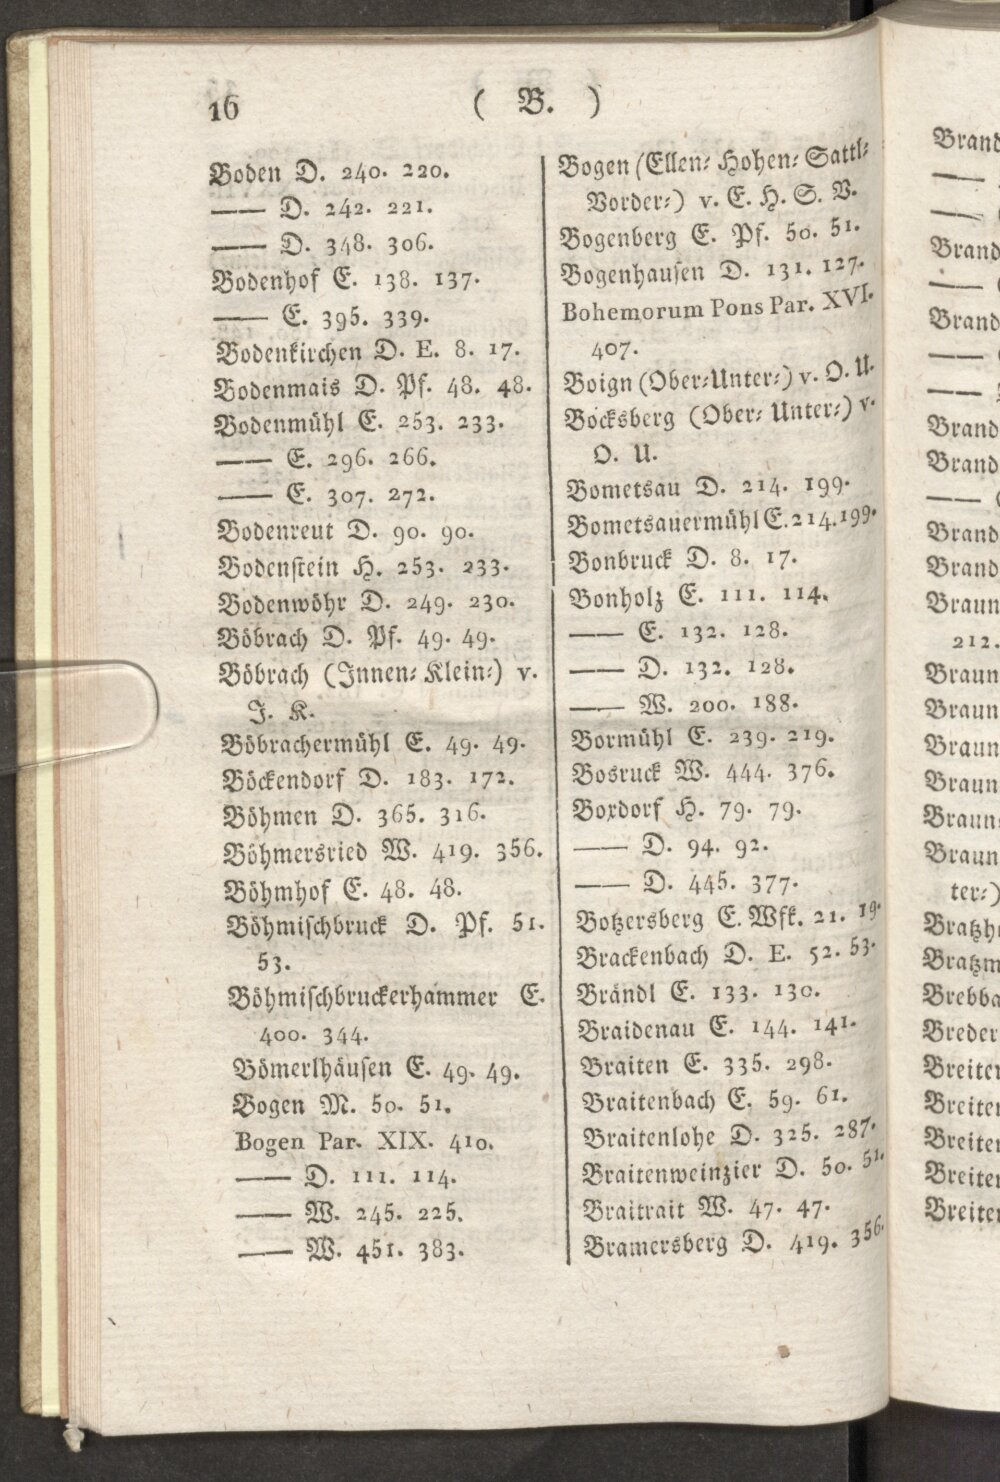 16
( B. )
Boden D. 240. 220.
—— D. 242. 221.
—— D. 348. 306.
Bodenhof E. 138. 137.
—— E. 395. 339.
Bodenkirchen D. E. 8. 17.
Bodenmais D. Pf. 48. 48.
Bodenmühl E. 253. 233.
—— E. 296. 266.
—— E. 307. 272.
Bodenreut D. 90. 90.
Bodenstein H. 253. 233.
Bodenwöhr D. 249. 230.
Böbrach D. Pf. 49. 49.
Böbrach (Innen⸗ Klein⸗) v.
J. K.
Böbrachermühl E. 49. 49.
Böckendorf D. 183. 172.
Böhmen D. 365. 316.
Böhmersried W. 419. 356.
Böhmhof E. 48. 48.
Böhmischbruck D. Pf. 51.
53.
Böhmischbruckerhammer E.
400. 344.
Bömerlhäusen E. 49. 49.
Bogen M. 50. 51.
Bogen Par. XIX. 410.
—— D. 111. 114.
—— W. 245. 225.
—— W. 451. 383.
Bogen (Ellen⸗ Hohen⸗ Sattl⸗
Vorder⸗) v. E. H. S. V.
Bogenberg E. Pf. 50. 51.
Bogenhausen D. 131. 127.
Bohemorum Pons Par. XVI.
407.
Boign (Ober⸗Unter⸗) v. O. U.
Bocksberg (Ober⸗ Unter⸗) v.
O. U.
Bometsau D. 214. 199.
Bometsauermühl E. 214. 199.
Bonbruck D. 8. 17.
Bonholz E. 111. 114.
—— E. 132. 128.
—— D. 132. 128.
—— W. 200. 188.
Bormühl E. 239. 219.
Bosruck W. 444. 376.
Boxdorf H. 79. 79.
—— D. 94. 92.
—— D. 445. 377.
Botzersberg E. Wfk. 21. 19.
Brackenbach D. E. 52. 53.
Brändl E. 133. 130.
Braidenau E. 144. 141.
Braiten E. 335. 298.
Braitenbach E. 59. 61.
Braitenlohe D. 325. 287.
Braitenweinzier D. 50. 51.
Braitrait W. 47. 47.
Bramersberg D. 419. 356.
Brand
——
——
Brand
——
Brand
——
——
Brand
Brand
——
Brand
Brand
Braun
212.
Braun
Braun
Braun
Braun
Braun⸗
Braun
ter⸗)
Bratzh
Bratzm
Brebba
Breder
Breite
Breite
Breite
Breite
Breite